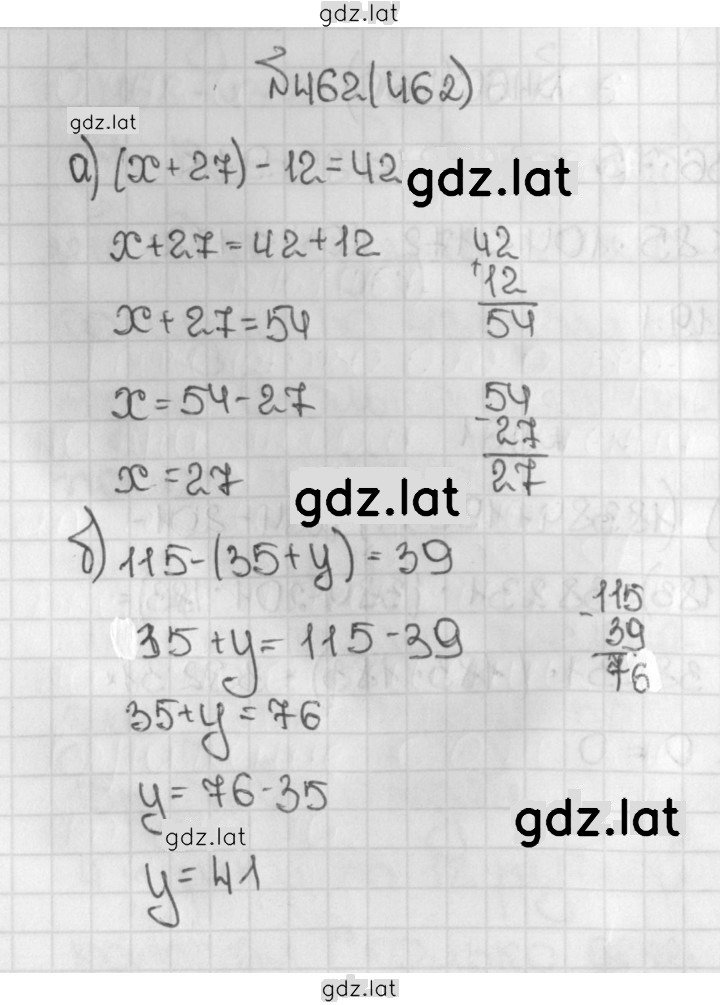 gdz.lat
№462(462)
gdz.lat
а) (x+27)-12=42
gdz.lat
x+27=42+12
42
+12
54
x+27=54
x=54-27
54
-27
27
x=27
gdz.lat
б) 115-(35+y)=39
35+y=115-39
-115
39
76
35+y=76
y=76-35
gdz.lat
gdz.lat
y=41
gdz.lat